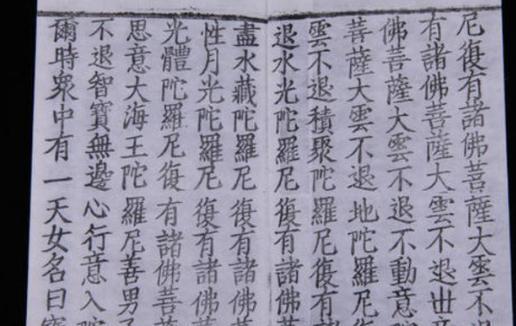 尼復有諸佛菩薩大雲不
有諸佛菩薩大雲不退世
佛菩薩大雲不退不動意
菩薩大雲不退地陀羅尼
雲不退積聚陀羅尼復有
退水光陀羅尼復有諸佛
盡水藏陀羅尼復有諸佛
性月光陀羅尼復有諸佛
光體陀羅尼復有諸佛菩
思意大海王陀羅尼善男
不退智寶無邊心行意入
爾時眾中有一天女名曰